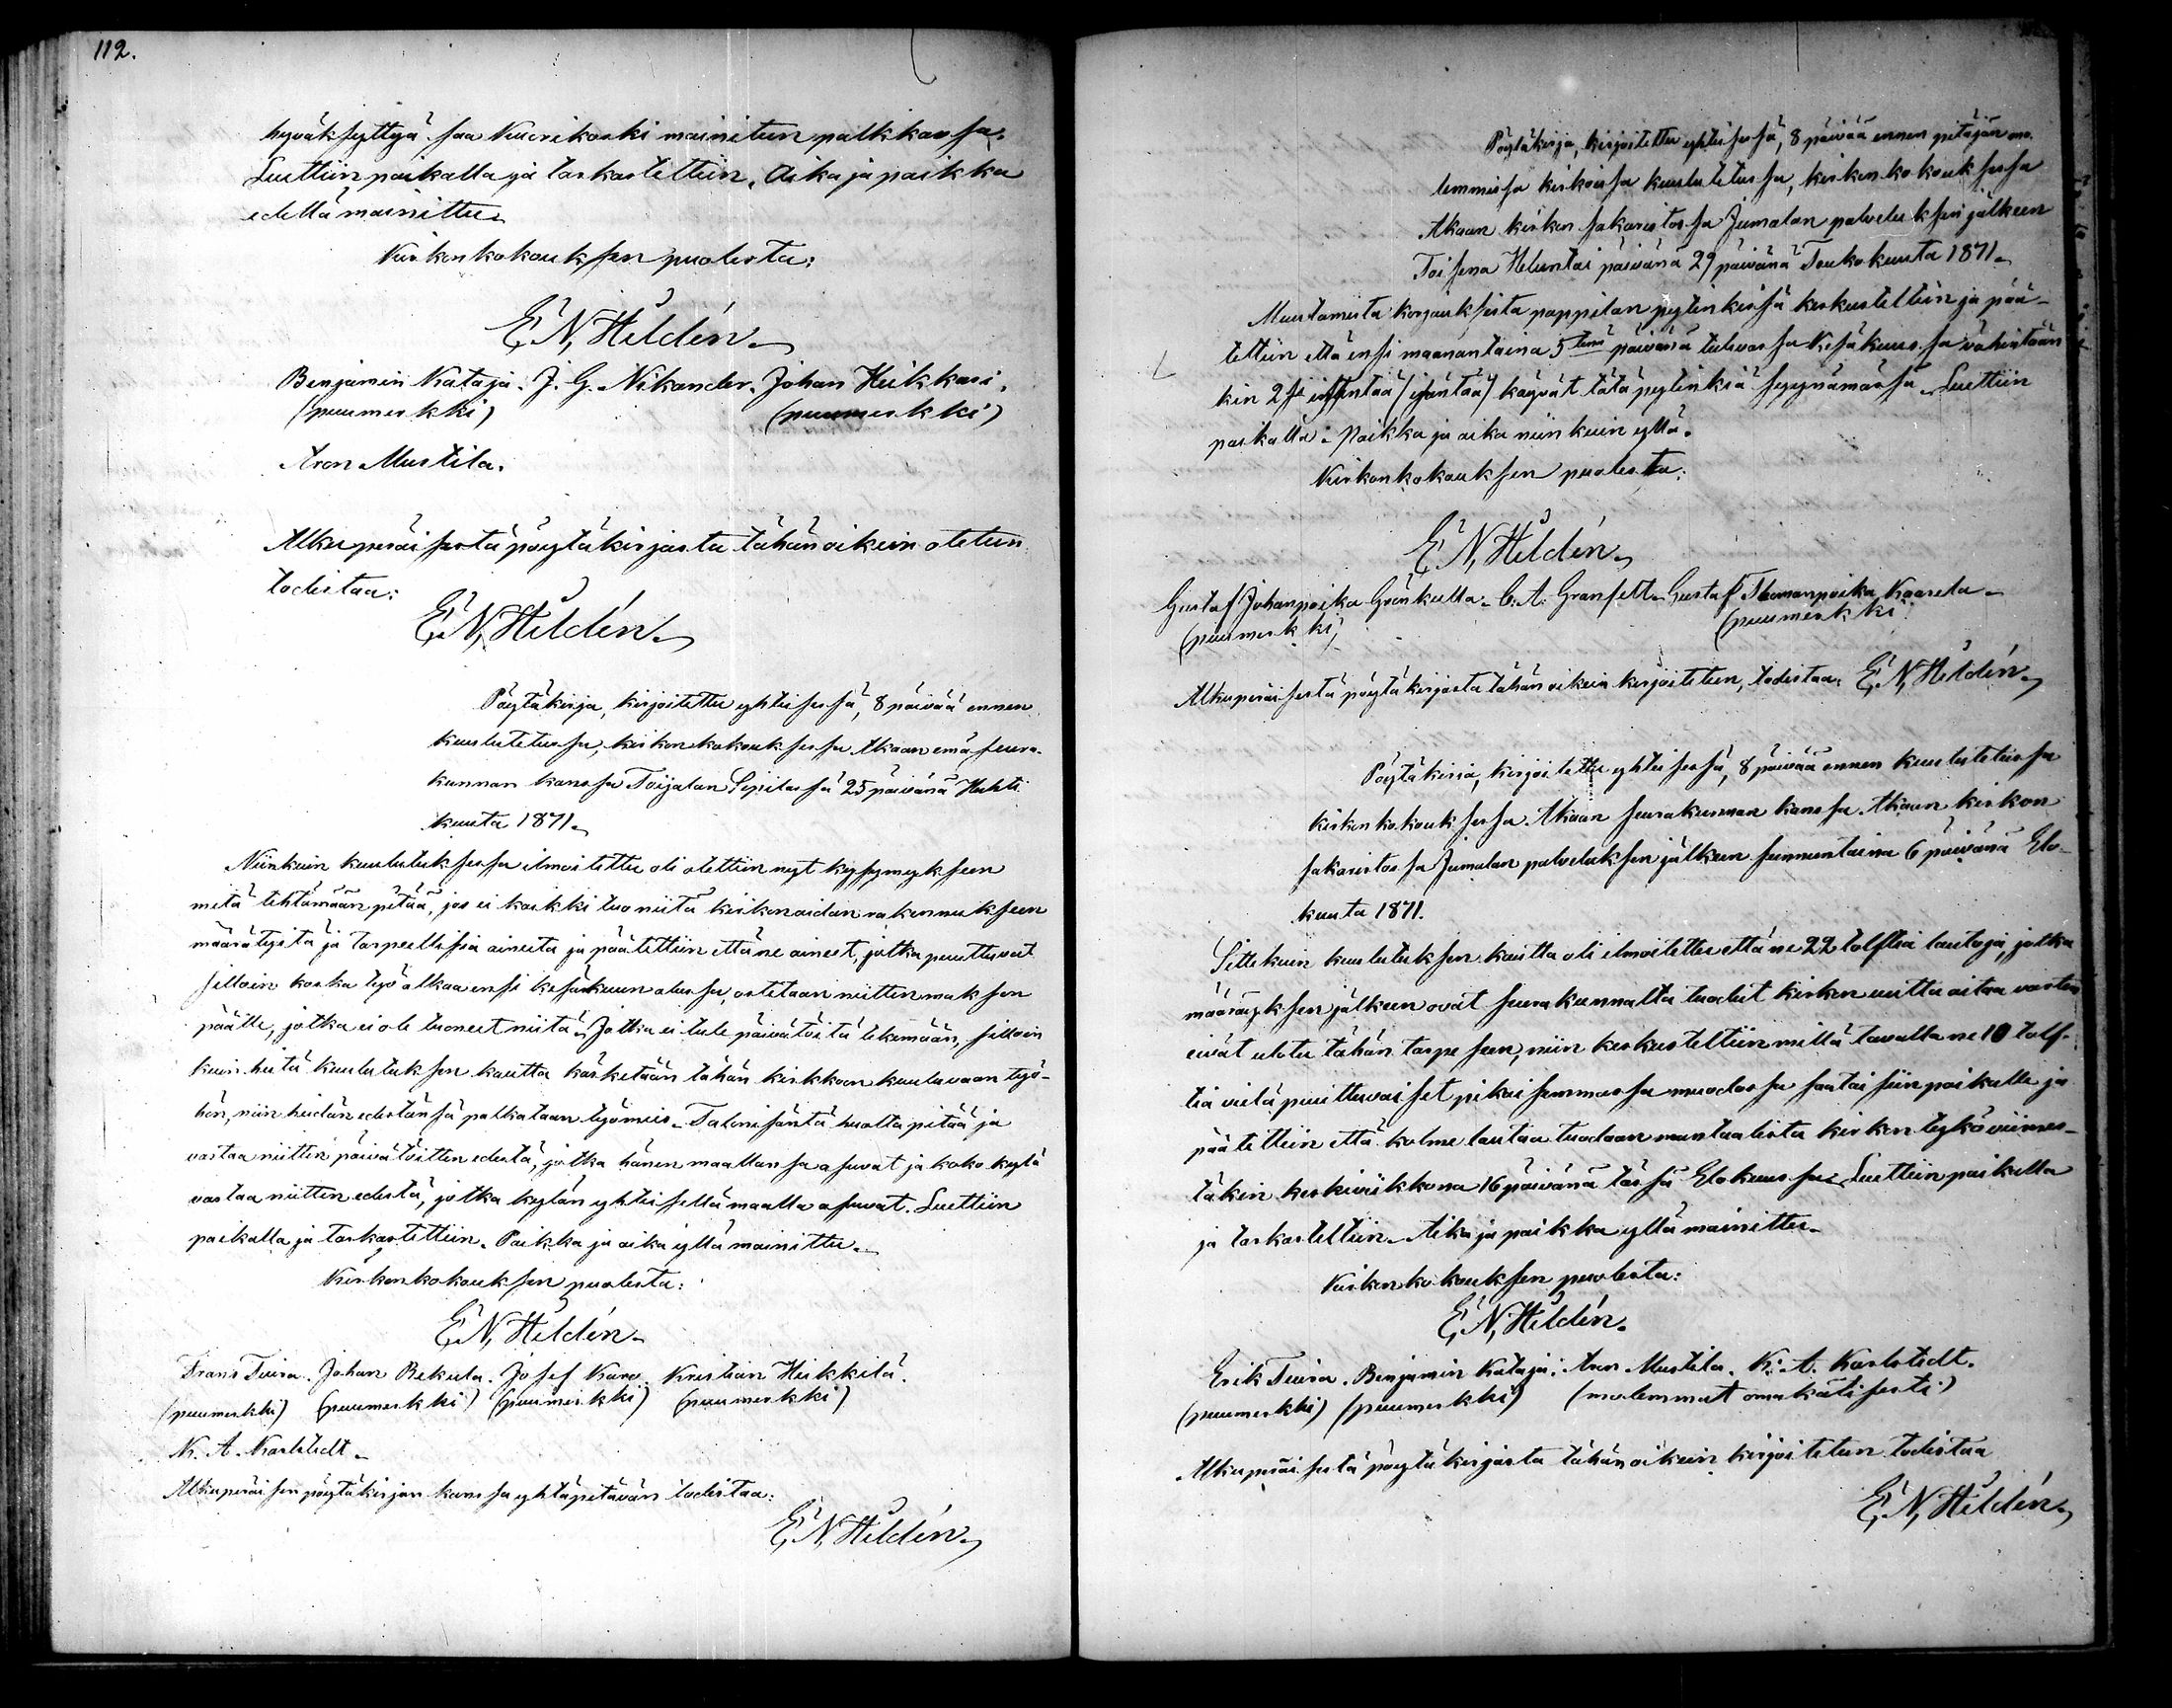 112.
hyväksyttyä saa Kuurikoski mainitun palkkansa.
Luettiin paikalla ja tarkastettiin. Aika ja paikka
edellä mainittu.
Kirkonkokouksen puolesta:
E. N. Hildén.
Benjamin Kataja. J. G. Nikander. Johan Heikkari.
(puumerkki) (puumerkki)
Aron Mustila.
Alkuperäisestä pöytäkirjasta tähän oikein otetun
todistaa:
E. N. Hildén.
Pöytäkirja, kirjoitettu yhteisessä, 8 päivää ennen
kuulutetussa, kirkonkokouksessa Akaan emäseura-
kunnan kanssa Toijalan Sipilässä 25 päivänä Huhti
kuuta 1871.
Niinkuin kuulutuksessa ilmoitettu oli otettiin nyt kysymykseen
mitä tehtämään pitää, jos ei kaikki tuo niitä kirkonaidan rakennukseen
määrätyitä ja tarpeellisia aineita ja päätettiin että ne aineet, jotka puuttuvat
silloin koska työ alkaa ensi kesäkuun alussa, ostetaan niitten maksun
päälle, jotka ei ole tuoneet niitä. Jotka ei tule päivätöitä tekemään, silloin
kuin heitä kuulutuksen kautta käsketään tähän kirkkoon kuuluvaan työ-
hön, niin heidän edestänsä palkataan työmies. Talonisäntä huolta pitää ja
vastaa niitten päivätöitten edestä, jotka hänen maallansa asuvat ja koko kylä
vastaa niitten edestä, jotka kylän yhteisellä maalla asuvat. Luettiin
paikalla ja tarkastettiin. Paikka ja aika yllä mainittu.
Kirkonkokouksen puolesta:
E. N. Hildén.
Frans Tiura. Johan Rekula. Josef Karo. Kristian Heikkilä.
(puumerkki) (puumerkki) (puumerkki) (puumerkki)
K. A. Karlstedt.
Alkuperäisen pöytäkirjan kanssa yhtäpitävän todistaa:
E. N. Hildén.
Pöytäkirja, kirjoitettu yhteisessä, 8 päivää ennen pitäjän mo-
lemmissa kirkoissa kuulutetussa, kirkonkokouksessa
Akaan kirkon sakaristossa Jumalan palveluksen jälkeen
Toisena Heluntai päivänä 29 päivänä Toukokuuta 1871.
Muutamista korjauksista pappilan pytingissä keskusteltiin ja pää-
tettiin että ensi maanantaina 5tenä päivänä tulevassa Kesäkuussa vähintään
kin 2si isäntää (isäntää) käyvät tätä pytinkiä syynäämässä. Luettiin
paikalla. Paikka ja aika niin kuin yllä.
Kirkonkokouksen puolesta:
E. N. Hildén.
Gustaf Johanpoika Grönkulla. C. A. Granfelt. Gustaf Thomanpoika Kaarela.
(puumerkki) (puumerkki
Alkuperäisestä pöytäkirjasta tähän oikein kirjoitetun, todistaa: E. N. Hildén.
Pöytäkirja, kirjoitettu yhteisessä, 8 päivää ennen kuulutetussa
kirkonkokouksessa Akaan seurakunnan kanssa Akaan kirkon
sakaristossa Jumalan palveluksen jälkeen sunnuntaina 6 päivänä Elo-
kuuta 1871.
Sittekuin kuulutuksen kautta oli ilmoitettu että ne 22 tolftia lautoja, jotka
määräyksen jälkeen ovat seurakunnalta tuodut kirkon uutta aitaa varten
eivät ulotu tähän tarpeseen, niin keskusteltiin millä tavalla ne 10 tolf-
tia vielä puuttuvaiset pikaisemmassa muodossa saataisiin paikalle ja
päätettiin että kolme lautaa tuodaan manttaalista kirkon tykö viimes-
täkin keskiviikkona 16 päivänä tässä Elokuussa. Luettiin paikalla
ja tarkastettiin. Aika ja paikka yllä mainittu.
Kirkonkokouksen puolesta:
E. N. Hildén.
Erik Tiura. Benjamin Kataja. Aron Mustila. K. A. Karlstedt.
(puumerkki) (puumerkki) (molemmat omakätisesti)
Alkuperäisestä pöytäkirjasta tähän oikein kirjoitetun todistaa
E. N. Hildén.